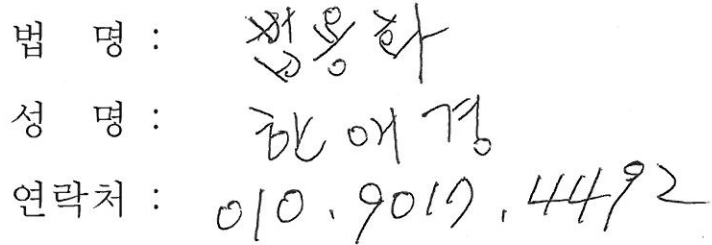 법 명 : 법용화
성 명 : 한애경
연락처 : 010.9017.4492